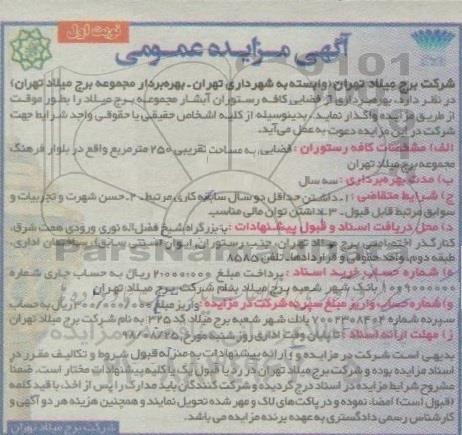 نوبت اول
آگهی مزایده عمومی
شرکت برج میلاد تهران (وابسته به شهرداری تهران - بهره‌بردار مجموعه برج میلاد تهران)
در نظر دارد، بهره‌برداری از فضایی کافه رستوران آبشار مجموعه برج میلاد را بطور موقت
از طریق مزایده واگذار نماید. بدینوسیله از کلیه اشخاص حقیقی یا حقوقی واجد شرایط جهت
شرکت در این مزایده دعوت به عمل می‌آید.
الف) مشخصات کافه رستوران : فضایی، به مساحت تقریبی ۲۵۰ مترمربع واقع در بلوار فرهنگ
مجموعه برج میلاد تهران
ب) مدت بهره‌برداری : سه سال
ج) شرایط متقاضی : ۱- داشتن حداقل دو سال سابقه کاری مرتبط ۲- حسن شهرت و تجربیات و
سوابق مرتبط قابل قبول ۳- داشتن توان مالی مناسب
د) محل دریافت اسناد و قبول پیشنهادات : بزرگراه شیخ فضل‌اله نوری ورودی همت شرق،
کنارگذر اختصاصی برج میلاد تهران، جنب رستوران ایوان (سنتی سابق)، ساختمان اداری،
طبقه دوم، واحد حقوقی و قراردادها، تلفن ۸۵۸۵
ه) شماره حساب خرید اسناد : پرداخت مبلغ ۲،۰۰۰،۰۰۰ ریال به حساب جاری شماره
بانک شهر شعبه برج میلاد بنام شرکت برج میلاد تهران
و) شماره حساب واریز مبلغ سپرده شرکت در مزایده : واریز مبلغ ریال به حساب
سپرده شماره بانک شهر شعبه برج میلاد کد ۲۳۵ به نام شرکت برج میلاد تهران
ز) مهلت ارائه اسناد : تا پایان وقت اداری روز شنبه مورخ
بدیهی است شرکت در مزایده و ارائه پیشنهادات به منزله قبول شروط و تکالیف مقرر در
اسناد مزایده بوده و شرکت برج میلاد تهران در رد یا قبول یک یا کلیه پیشنهادات مختار است. ضمناً
مشروح شرایط مزایده در اسناد درج گردیده و شرکت کنندگان باید مدارک را پس از اخذ، با قید کلمه
(قبول است) امضاء نموده و در پاکت‌های لاک و مهر شده تحویل نمایند و همچنین هزینه هر دو آگهی و
کارشناس رسمی دادگستری به عهده برنده مزایده می‌باشد.
شرکت برج میلاد تهران